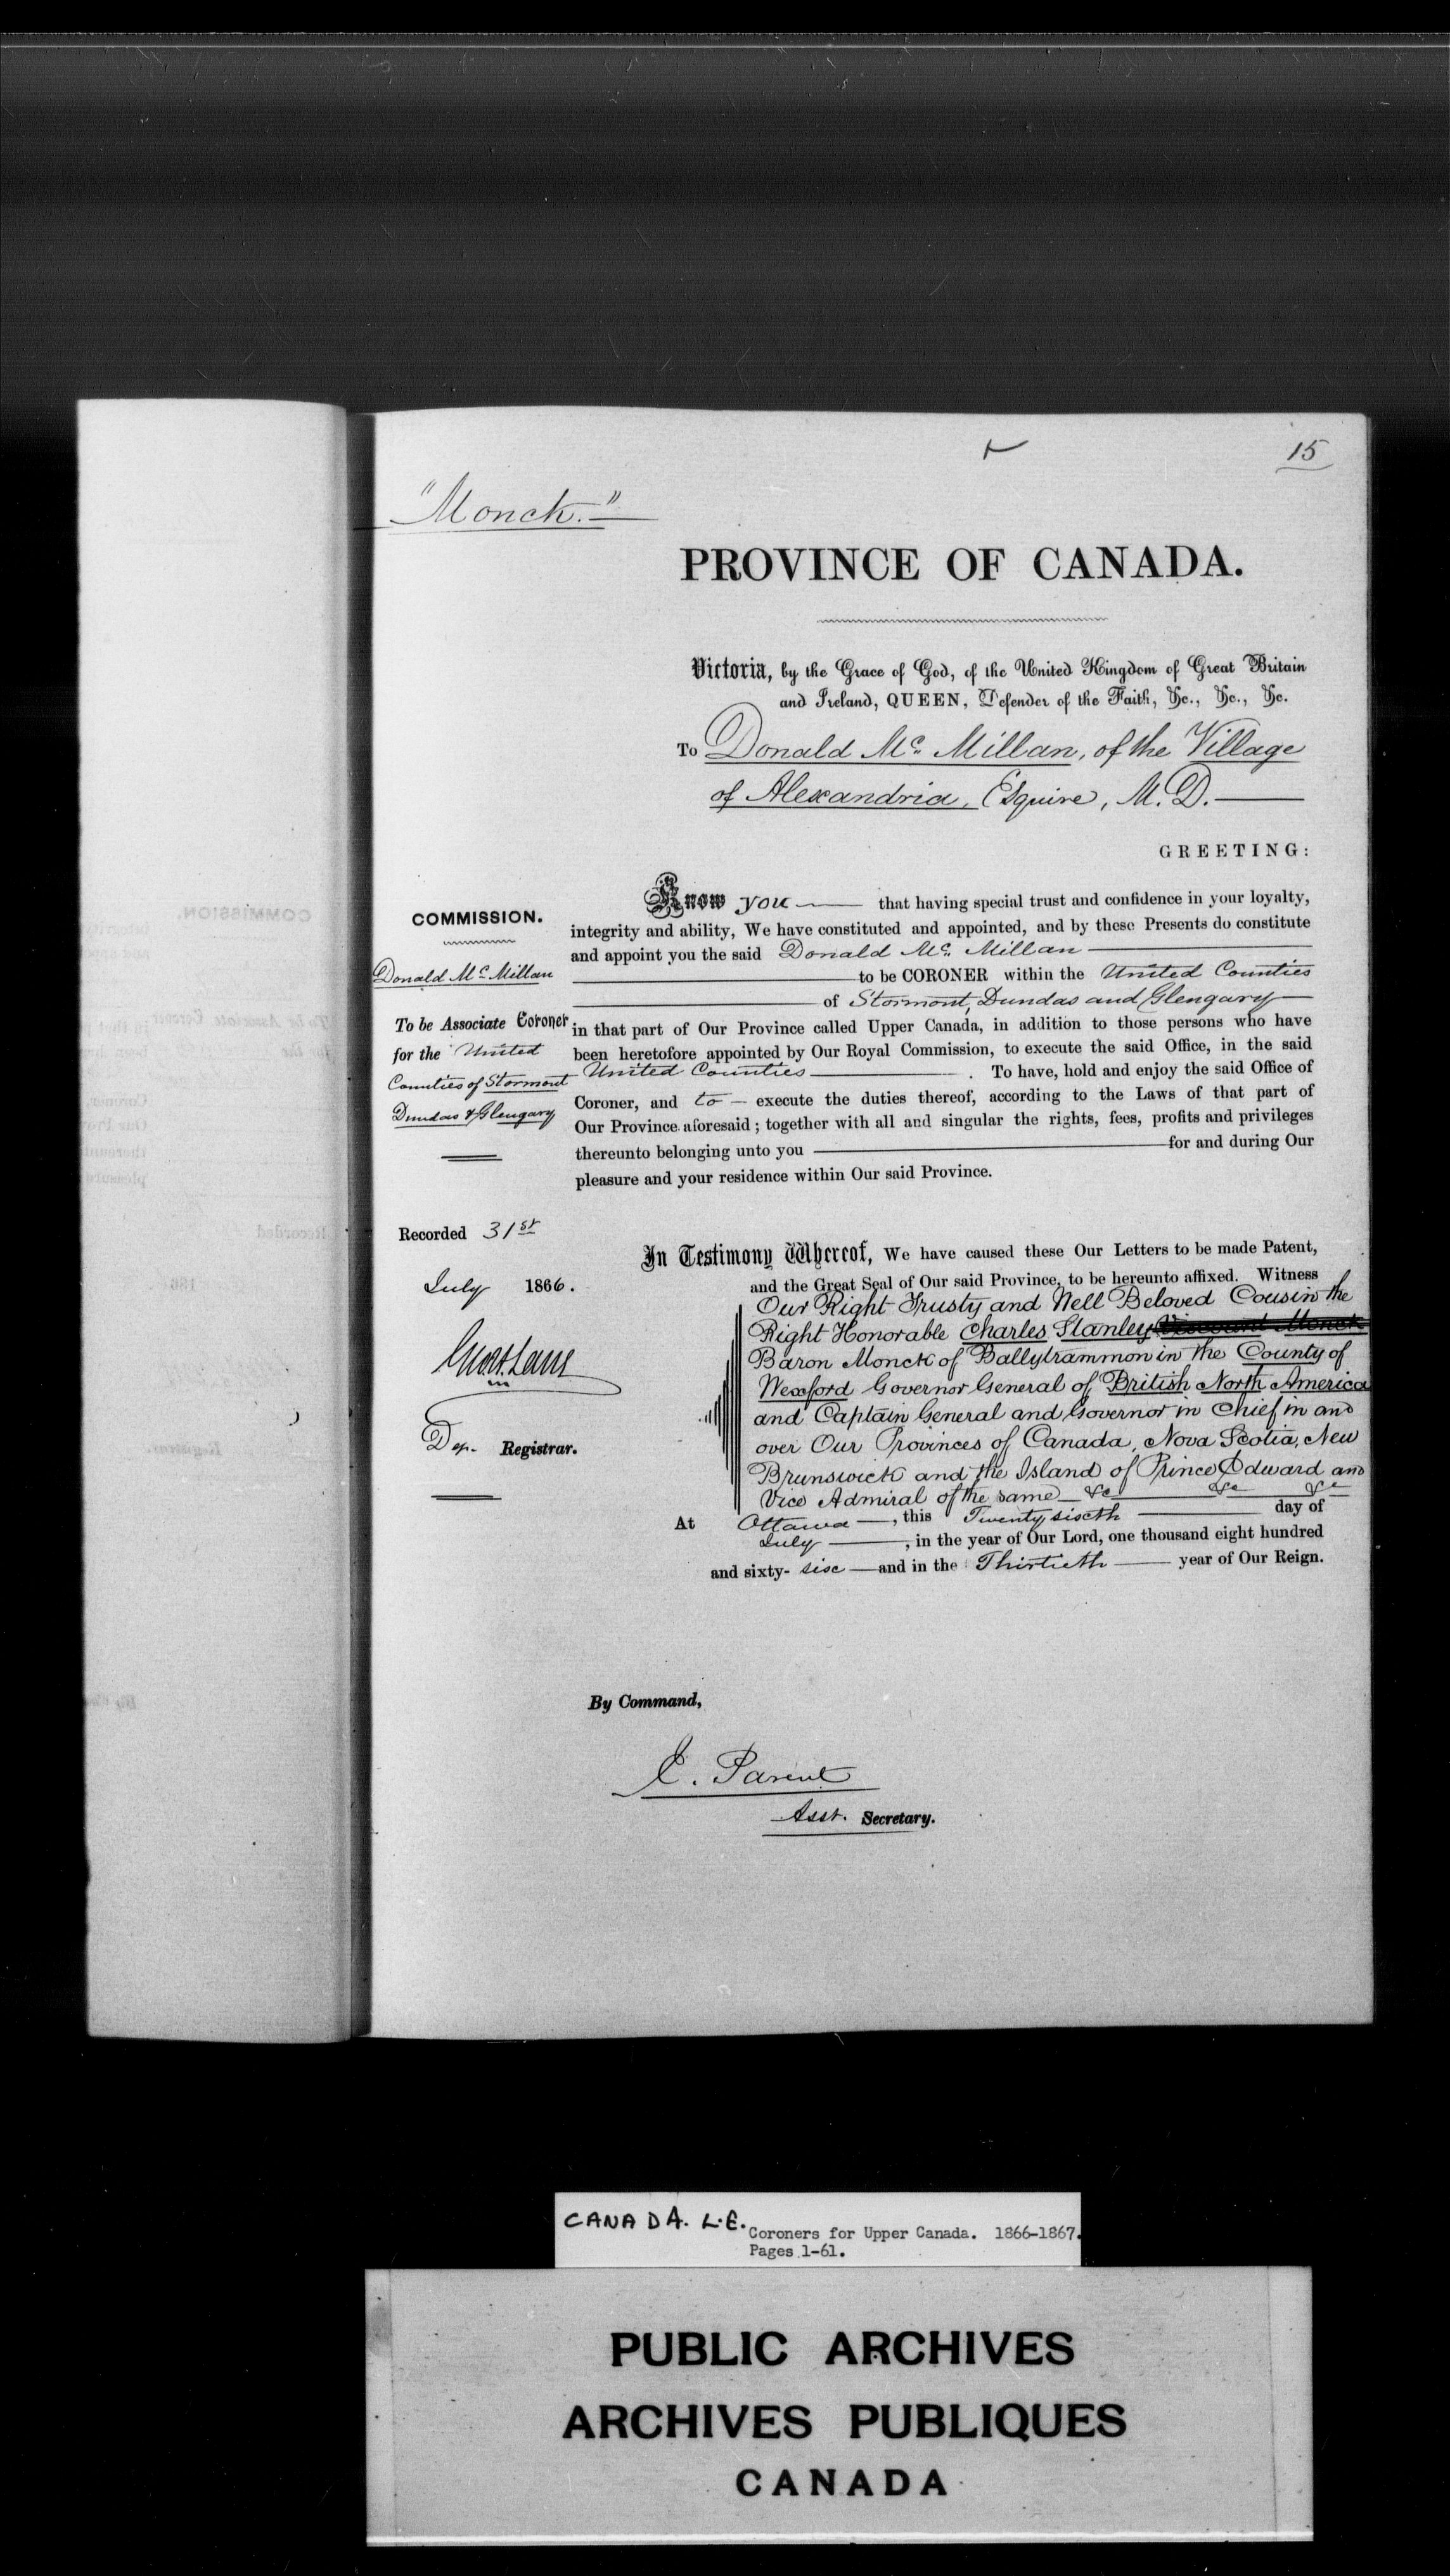 15
"Monck."
PROVINCE OF CANADA.
Victoria, by the Grace of God, of the United Kingdom of Great Britain
and Ireland, QUEEN, Defender of the Faith, &c., &c., &c.
To Donald Mc. Millan, of the Village
of Alexandria, Esquire, M.D.
GREETING:
Know you that having special trust and confidence in your loyalty,
integrity and ability, We have constituted and appointed, and by these Presents do constitute
and appoint you the said Donald Mc. Millan
to be CORONER within the United Counties
of Stormont, Dundas and Glengary
in that part of Our Province called Upper Canada, in addition to those persons who have
been heretofore appointed by Our Royal Commission, to execute the said Office, in the said
United Counties . To have, hold and enjoy the said Office of
Coroner, and to execute the duties thereof, according to the Laws of that part of
Our Province aforesaid; together with all and singular the rights, fees, profits and privileges
thereunto belonging unto you for and during Our
pleasure and your residence within Our said Province.
COMMISSION.
Donald Mc. Millan
To be Associate Coroner
for the United
Counties of Stormont
Dundas & Glengary
Recorded 31st
July 1866.
Dep. Registrar.
In Testimony Whereof, We have caused these Our Letters to be made Patent,
and the Great Seal of Our said Province, to be hereunto affixed. Witness
Our Right Trusty and Well Beloved Cousin the
Right Honorable Charles Stanley Viscount Monck
Baron Monck of Ballytrammon in the County of
Wexford Governor General of British North America
and Captain General and Governor in Chief in and
over Our Provinces of Canada, Nova Scotia, New
Brunswick and the Island of Prince Edward and
Vice Admiral of the same &c &c &c
At Ottawa, this Twenty sixth day of
July, in the year of Our Lord, one thousand eight hundred
and sixty-six and in the Thirtieth year of Our Reign.
By Command,
E. Parent
Asst. Secretary.
CANADA. L.E. Coroners for Upper Canada. 1866-1867.
Pages 1-61.
PUBLIC ARCHIVES
ARCHIVES PUBLIQUES
CANADA